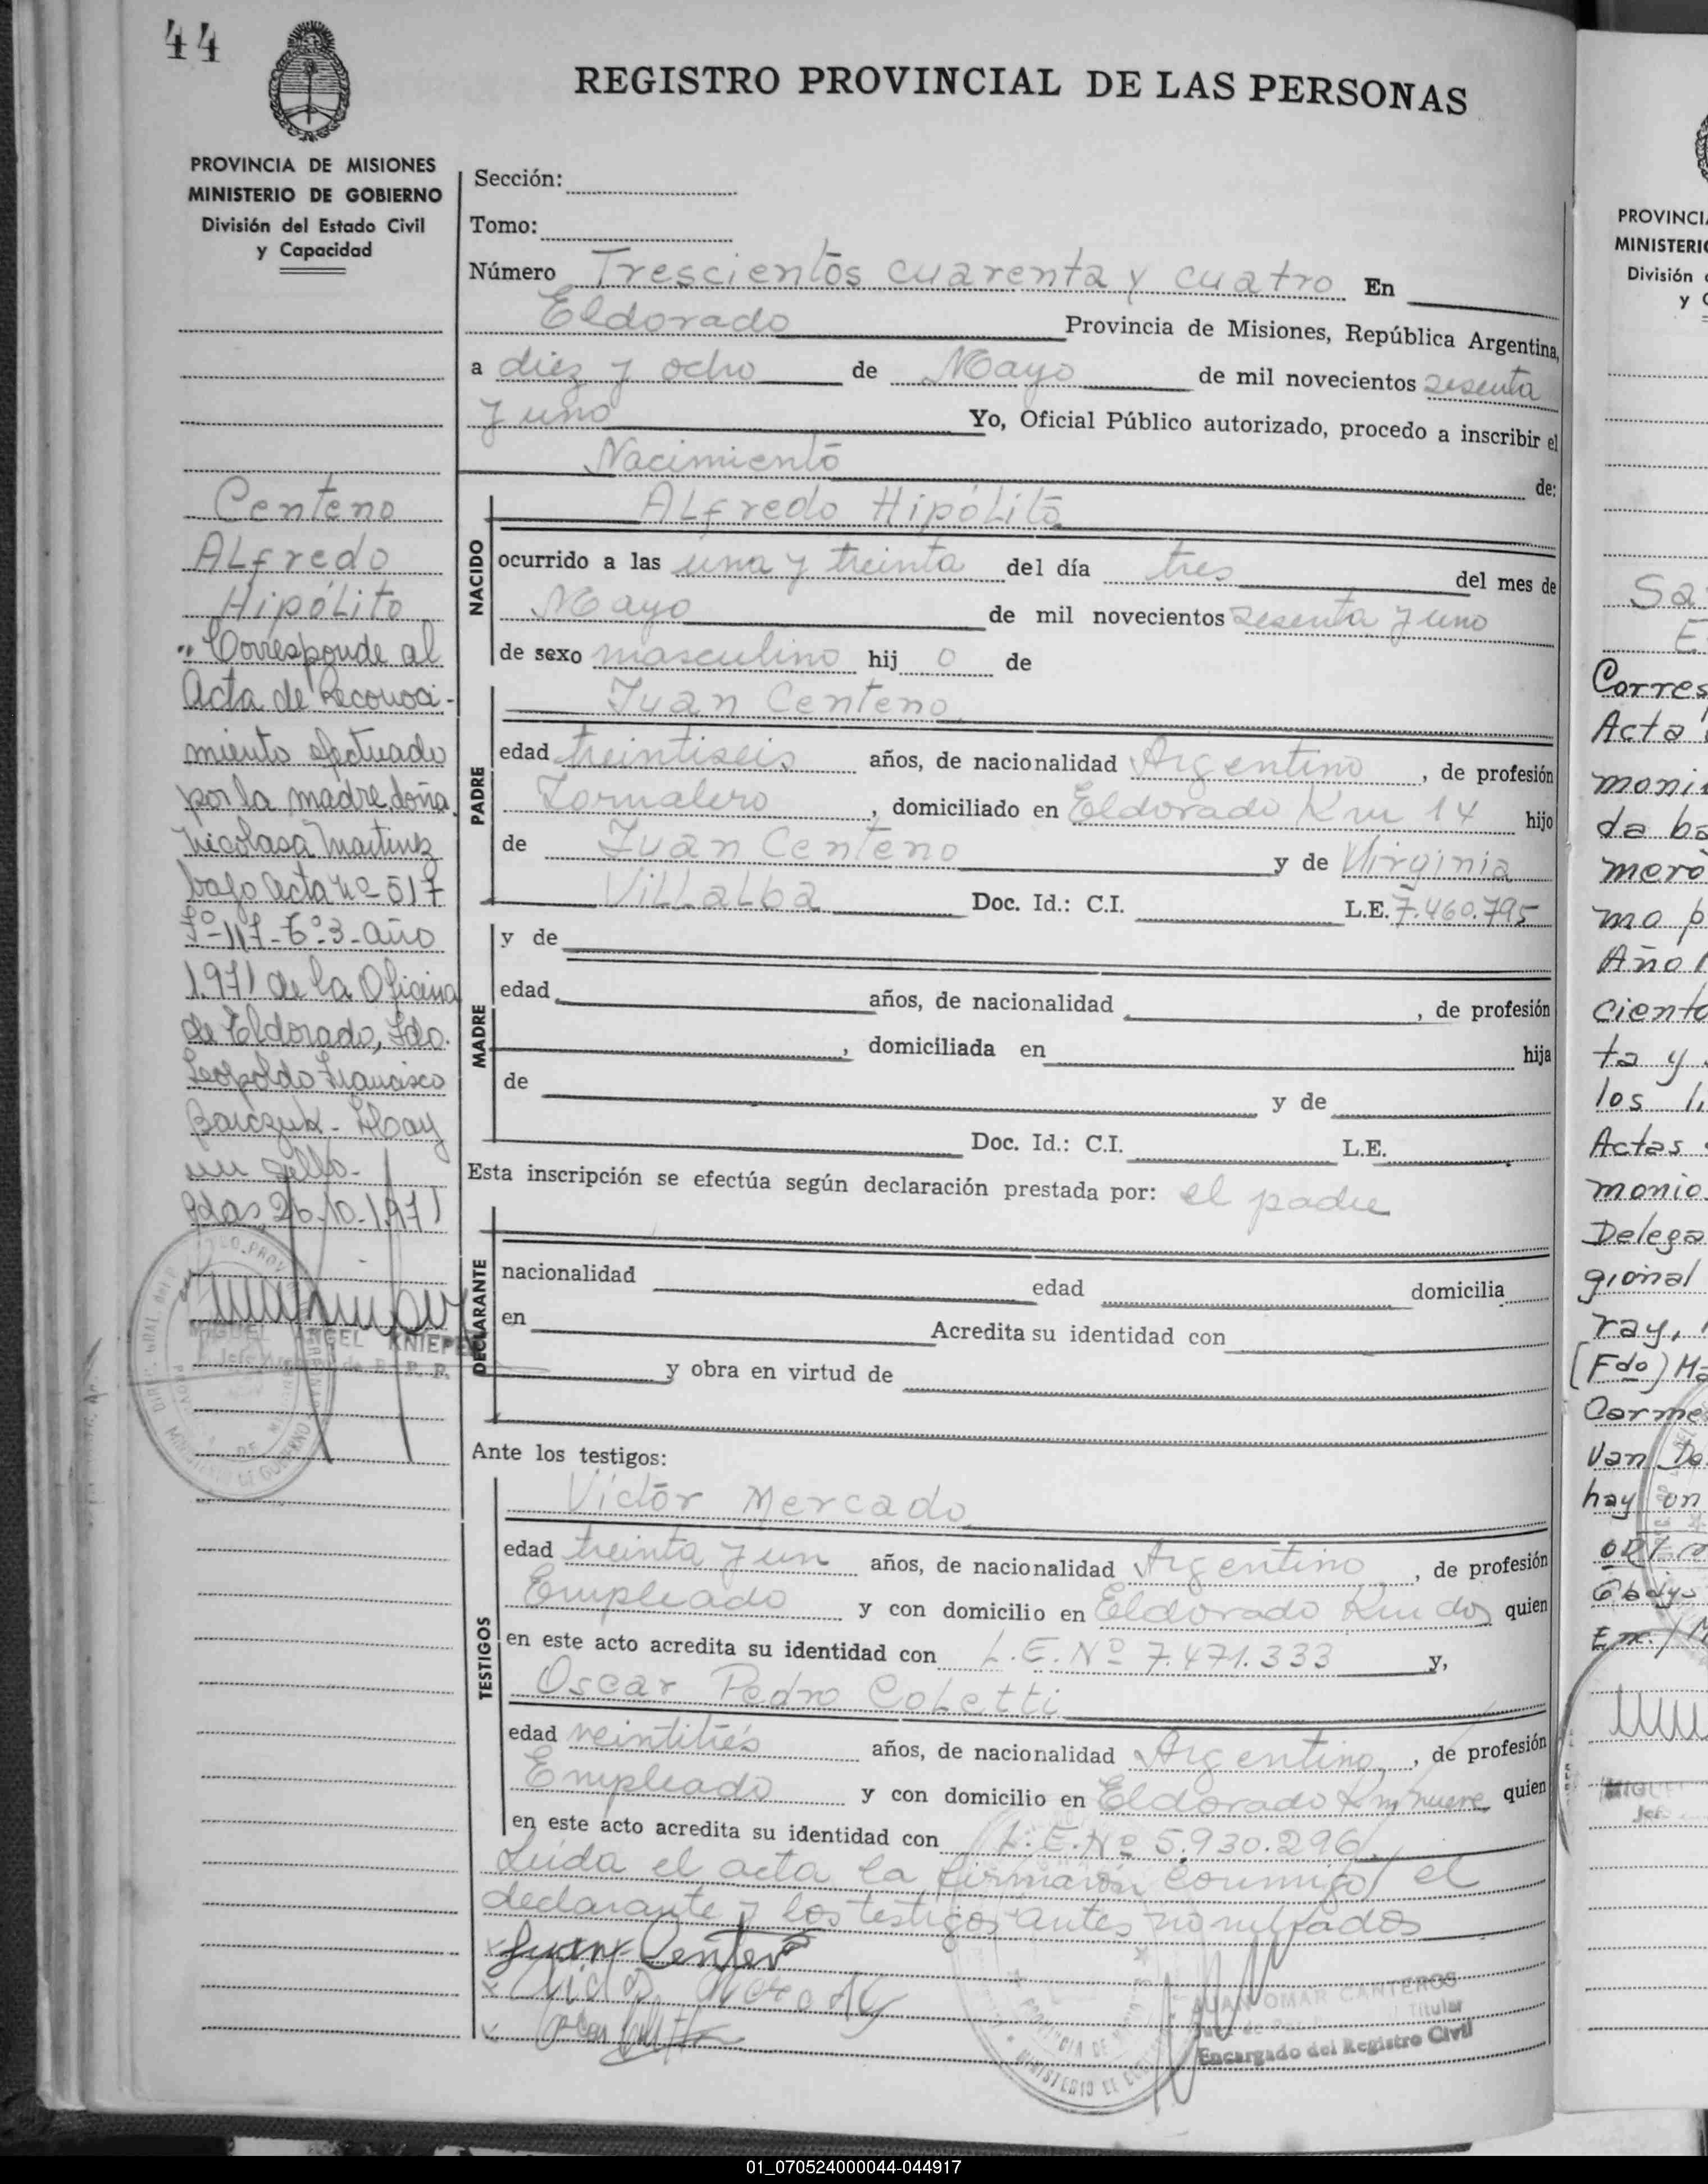 44
REGISTRO PROVINCIAL DE LAS PERSONAS
PROVINCIA DE MISIONES
MINISTERIO DE GOBIERNO
División del Estado Civil
y Capacidad
Centeno
Alfredo
Hipólito
"Corresponde al
Acta de Reconoci-
miento efectuado
por la madre doña
Nicolasa Martinez
bajo acta Nº 517
Fº 117-Tº 3-año
1971 de la Oficina
de Eldorado, Fdo.
Leopoldo Francisco
Barczuk- Hay
un sello-
Pdas, 26-10-1971
MIGUEL ANGEL KNIEPE
Sección:
Tomo:
Número Trescientos cuarenta y cuatro En
Eldorado Provincia de Misiones, República Argentina,
a diez y ocho de Mayo de mil novecientos sesenta
y uno Yo, Oficial Público autorizado, procedo a inscribir el
Nacimiento de:
NACIDO
Alfredo Hipólito
ocurrido a las una y treinta del día tres del mes de
Mayo de mil novecientos sesenta y uno
de sexo masculino hij o de
PADRE
Juan Centeno
edad treintiseis años, de nacionalidad Argentino, de profesión
Jornalero, domiciliado en Eldorado Km 14 hijo
de Juan Centeno y de Virginia
Villalba Doc. Id.: C.I. L.E. 7.460.795
MADRE
y de
edad años, de nacionalidad , de profesión
, domiciliada en hija
de y de
Doc. Id.: C.I. L.E.
Esta inscripción se efectúa según declaración prestada por: el padre
DECLARANTE
nacionalidad edad domicilia
en Acredita su identidad con
y obra en virtud de
Ante los testigos:
TESTIGOS
Victor Mercado
edad treinta y un años, de nacionalidad Argentino, de profesión
Empleado y con domicilio en Eldorado Km dos quien
en este acto acredita su identidad con L.E. Nº 7.471.333 y,
Oscar Pedro Coletti
edad veintitrés años, de nacionalidad Argentino, de profesión
Empleado y con domicilio en Eldorado Km nueve quien
en este acto acredita su identidad con L.E. Nº 5.930.296
Leida el acta la firmaron conmigo el
declarante y los testigos antes nombrados
Juan Centeno
JUAN OMAR CANTEROS
Titular
Encargado del Registro Civil
PROVINCI
MINISTERI
División
y
Sa
E
Corres
Acta
moni
da ba
mero
mo p
Año 1
ciento
ta y
los
Actas
monio
Delega
gional
ray,
(Fdo) Ma
Carme
Van De
hay un
MIGU
Jefe
01_070524000044-044917